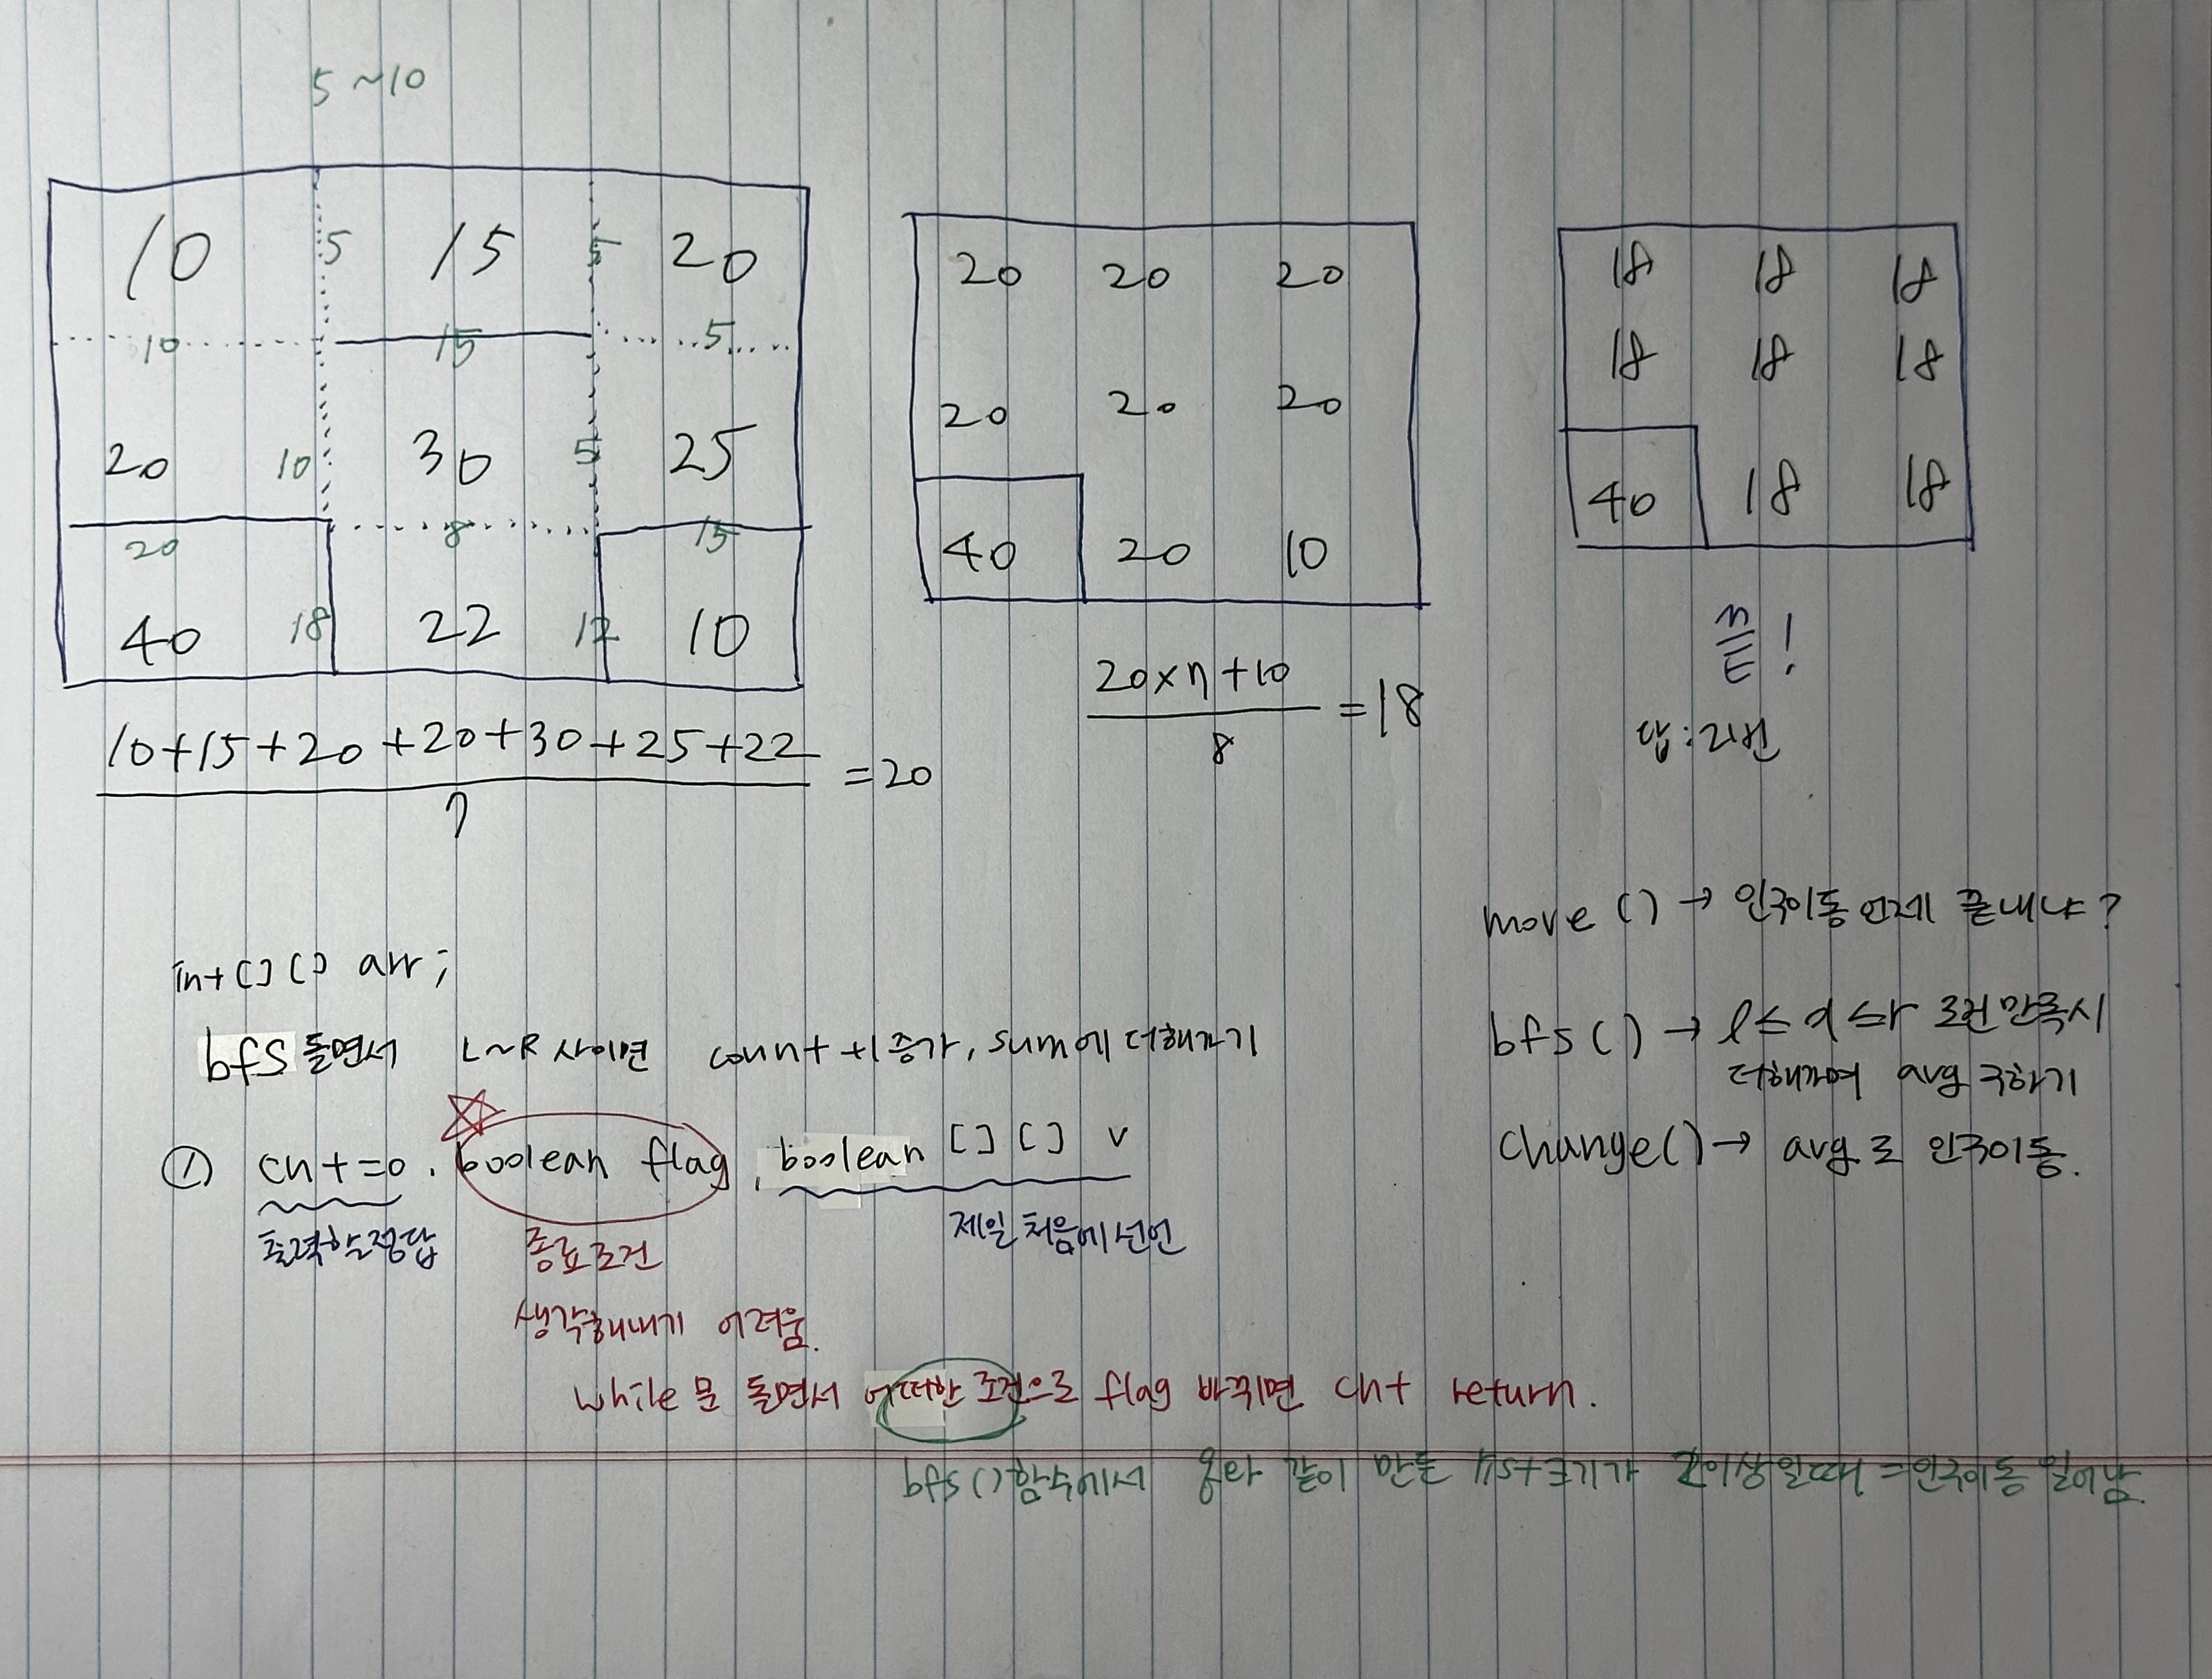 5 ~10
10 5 15 5 20
10 15 5
20 10 30 5 25
20 8 15
40 18 22 12 10
10+15+20+20+30+25+22
7
=20
20 20 20
20 20 20
40 20 10
20×7+10
8
=18
18 18 18
18 18 18
40 18 18
끝!
답: 2번
int[][] arr;
bfs 돌면서 L~R 사이면 count +1 증가, sum에 더해가기
① cnt=0. boolean flag, boolean [][] v
출력할 정답
종료조건
제일 처음에 선언
생각해내기 어려움.
while문 돌면서 어떠한 조건으로 flag 바뀌면 cnt return.
bfs()함수에서 큐와 같이 만든 list크기가 2이상일때 = 인구이동 일어남.
move () → 인구이동 언제 끝내냐?
bfs() → l ≤ d ≤ r 조건 만족시
더해가며 avg 구하기
change() → avg로 인구이동.